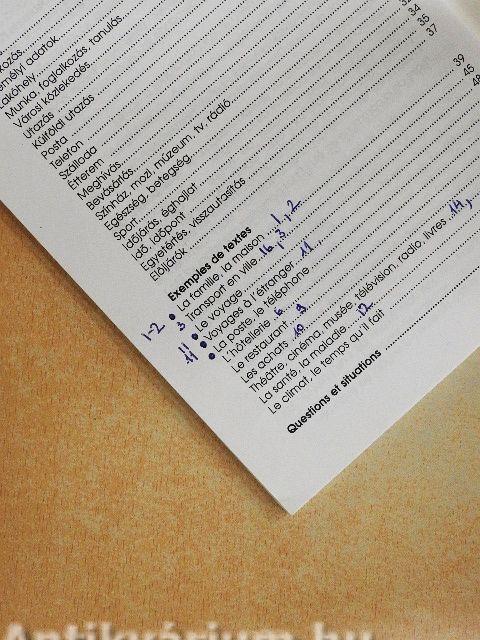 34
35
37
Személyi adatok
Lakóhely
Munka, foglalkozás, tanulás
Városi közlekedés
Utazás
Külföldi utazás
Posta
Telefon
Szálloda
Étterem
Meghívás
Bevásárlás
Színház, mozi, múzeum, tv, rádió
Egészség, betegség
Sport
Időjárás, éghajlat
Idő, időpont
Egyetértés, visszautasítás
Elöljárók
39
45
48
Exemples de textes
1-2 • La famille, la maison 1, 2
3 Transport en ville 16, 3,
11 • Le voyage
11 • Voyages à l'étranger 11
• La poste, le téléphone
L'hôtellerie
Le restaurant 9
Les achats 10
Théâtre, cinéma, musée, télévision, radio, livres 14,
La santé, la maladie 12
Le climat, le temps qu'il fait
Questions et situations
Antikvárium.hu